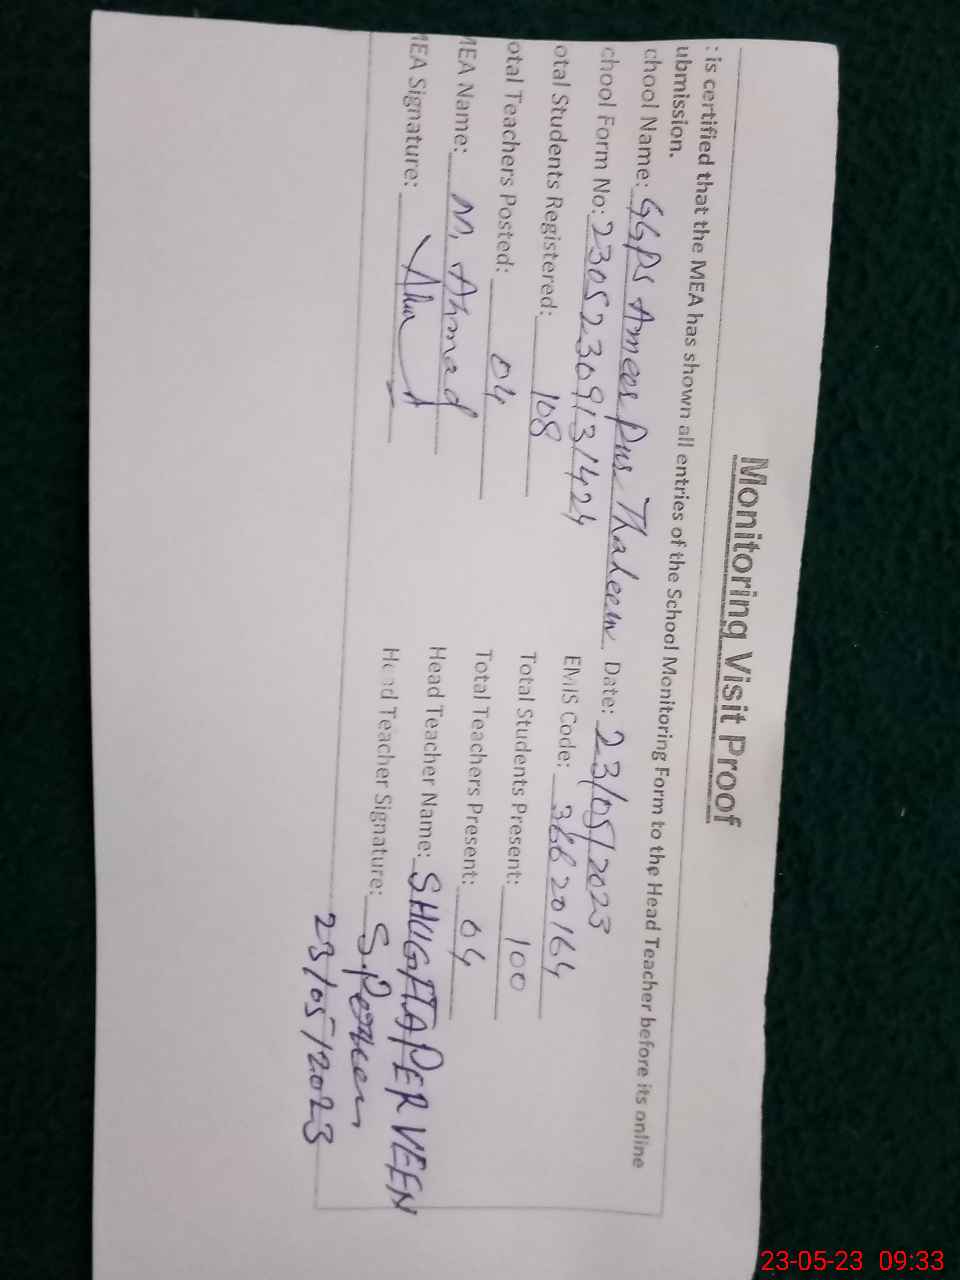 Monitoring Visit Proof
: is certified that the MEA has shown all entries of the School Monitoring Form to the Head Teacher before its online
ubmission.
chool Name: GGPS Ameer Pur Thaheem Date: 23/05/2023
chool Form No: 23052309131424 EMIS Code: 36620164
otal Students Registered: 108 Total Students Present: 100
otal Teachers Posted: 04 Total Teachers Present: 04
MEA Name: M. Ahmad Head Teacher Name: SHUGFTA PERVEEN
MEA Signature: Head Teacher Signature: S.Perveen
23/05/2023
23-05-23 09:33